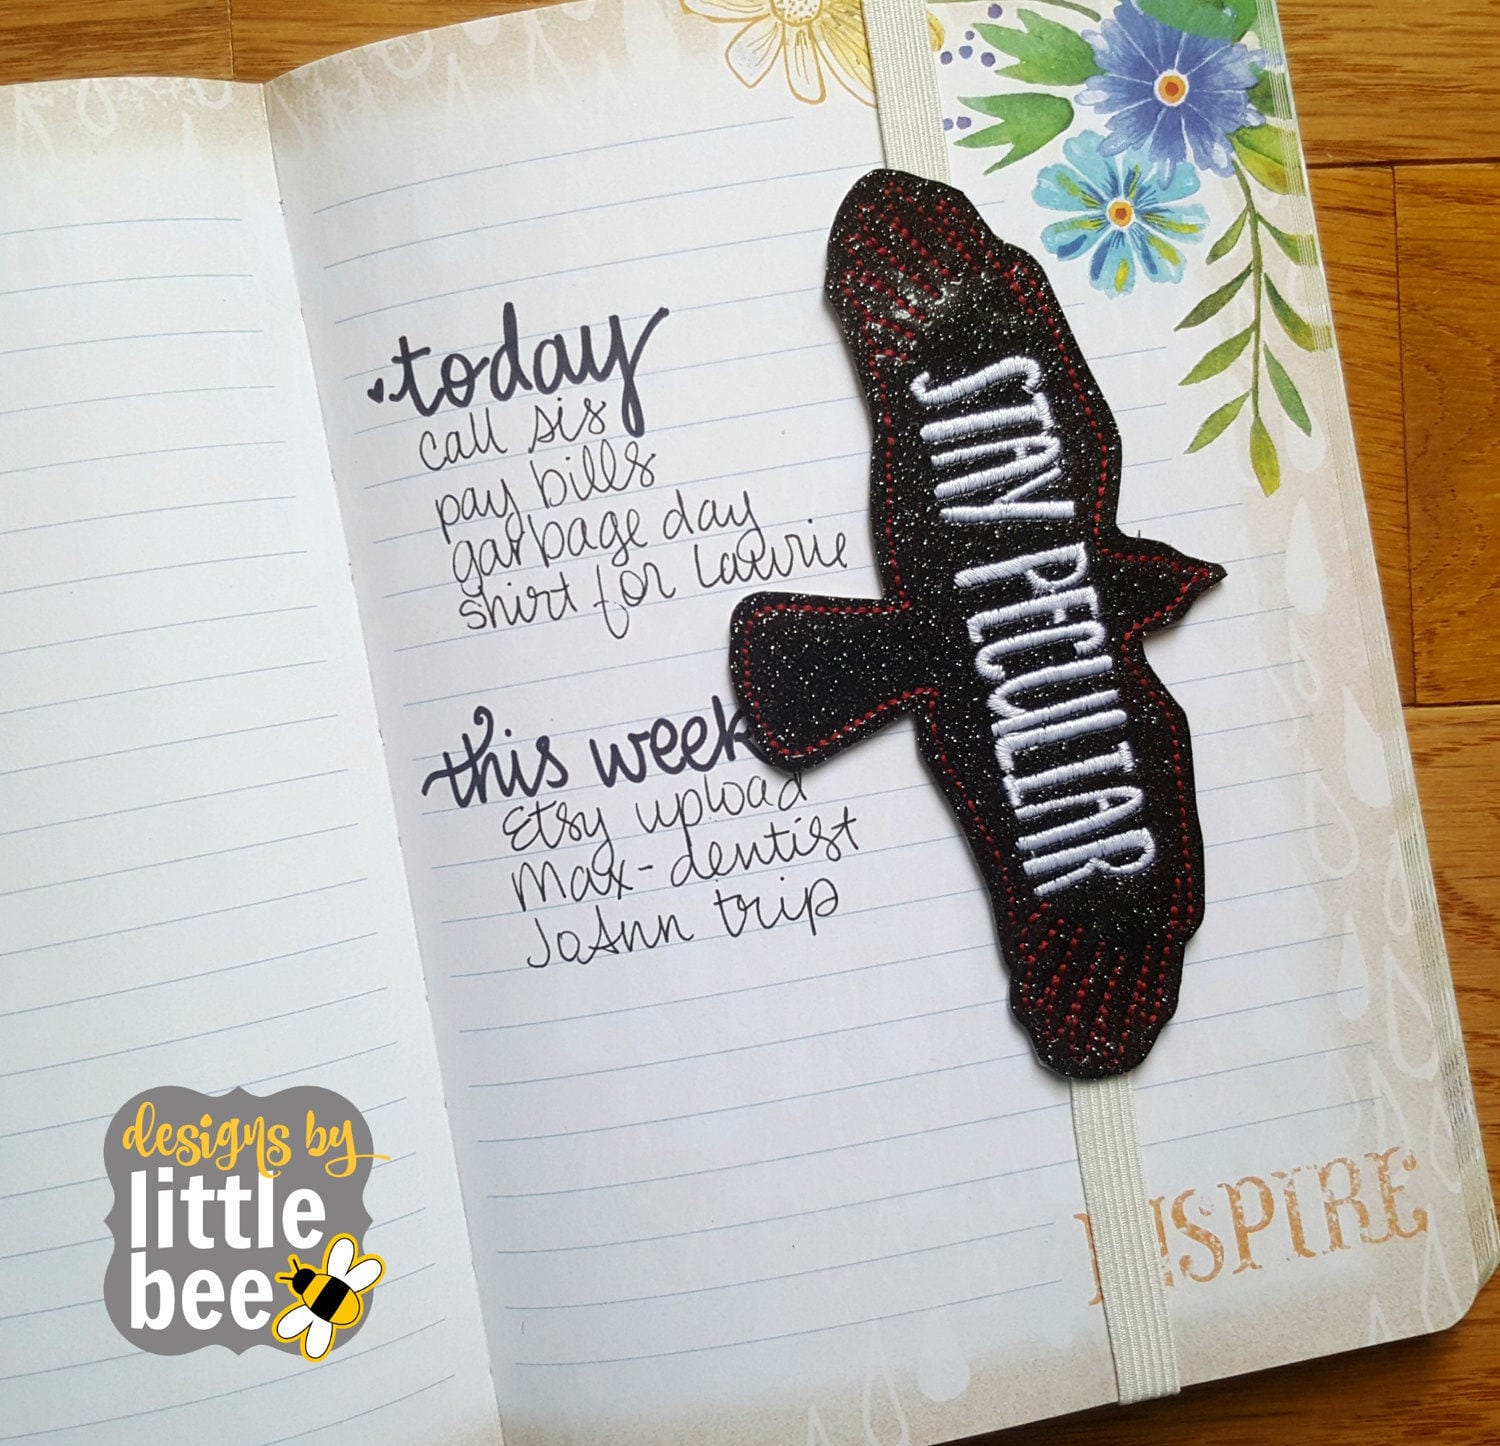 today
call sis
pay bills
garbage day
shirt for Lawrie
this week
Etsy upload
Max-dentist
JoAnn trip
STAY PECULIAR
INSPIRE
designs by
little
bee